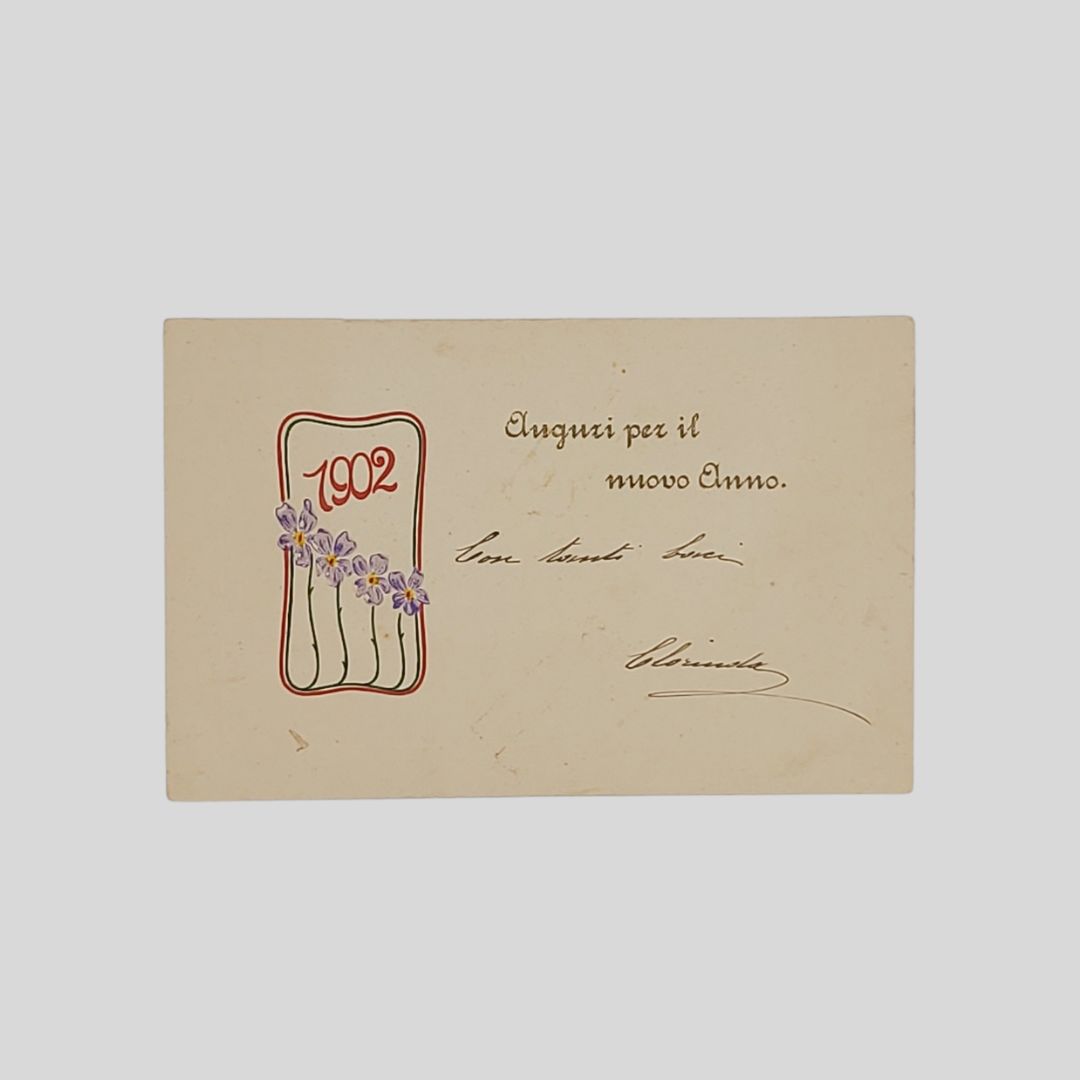 1902
Auguri per il
nuovo Anno.
Con tanti baci
Clorinda